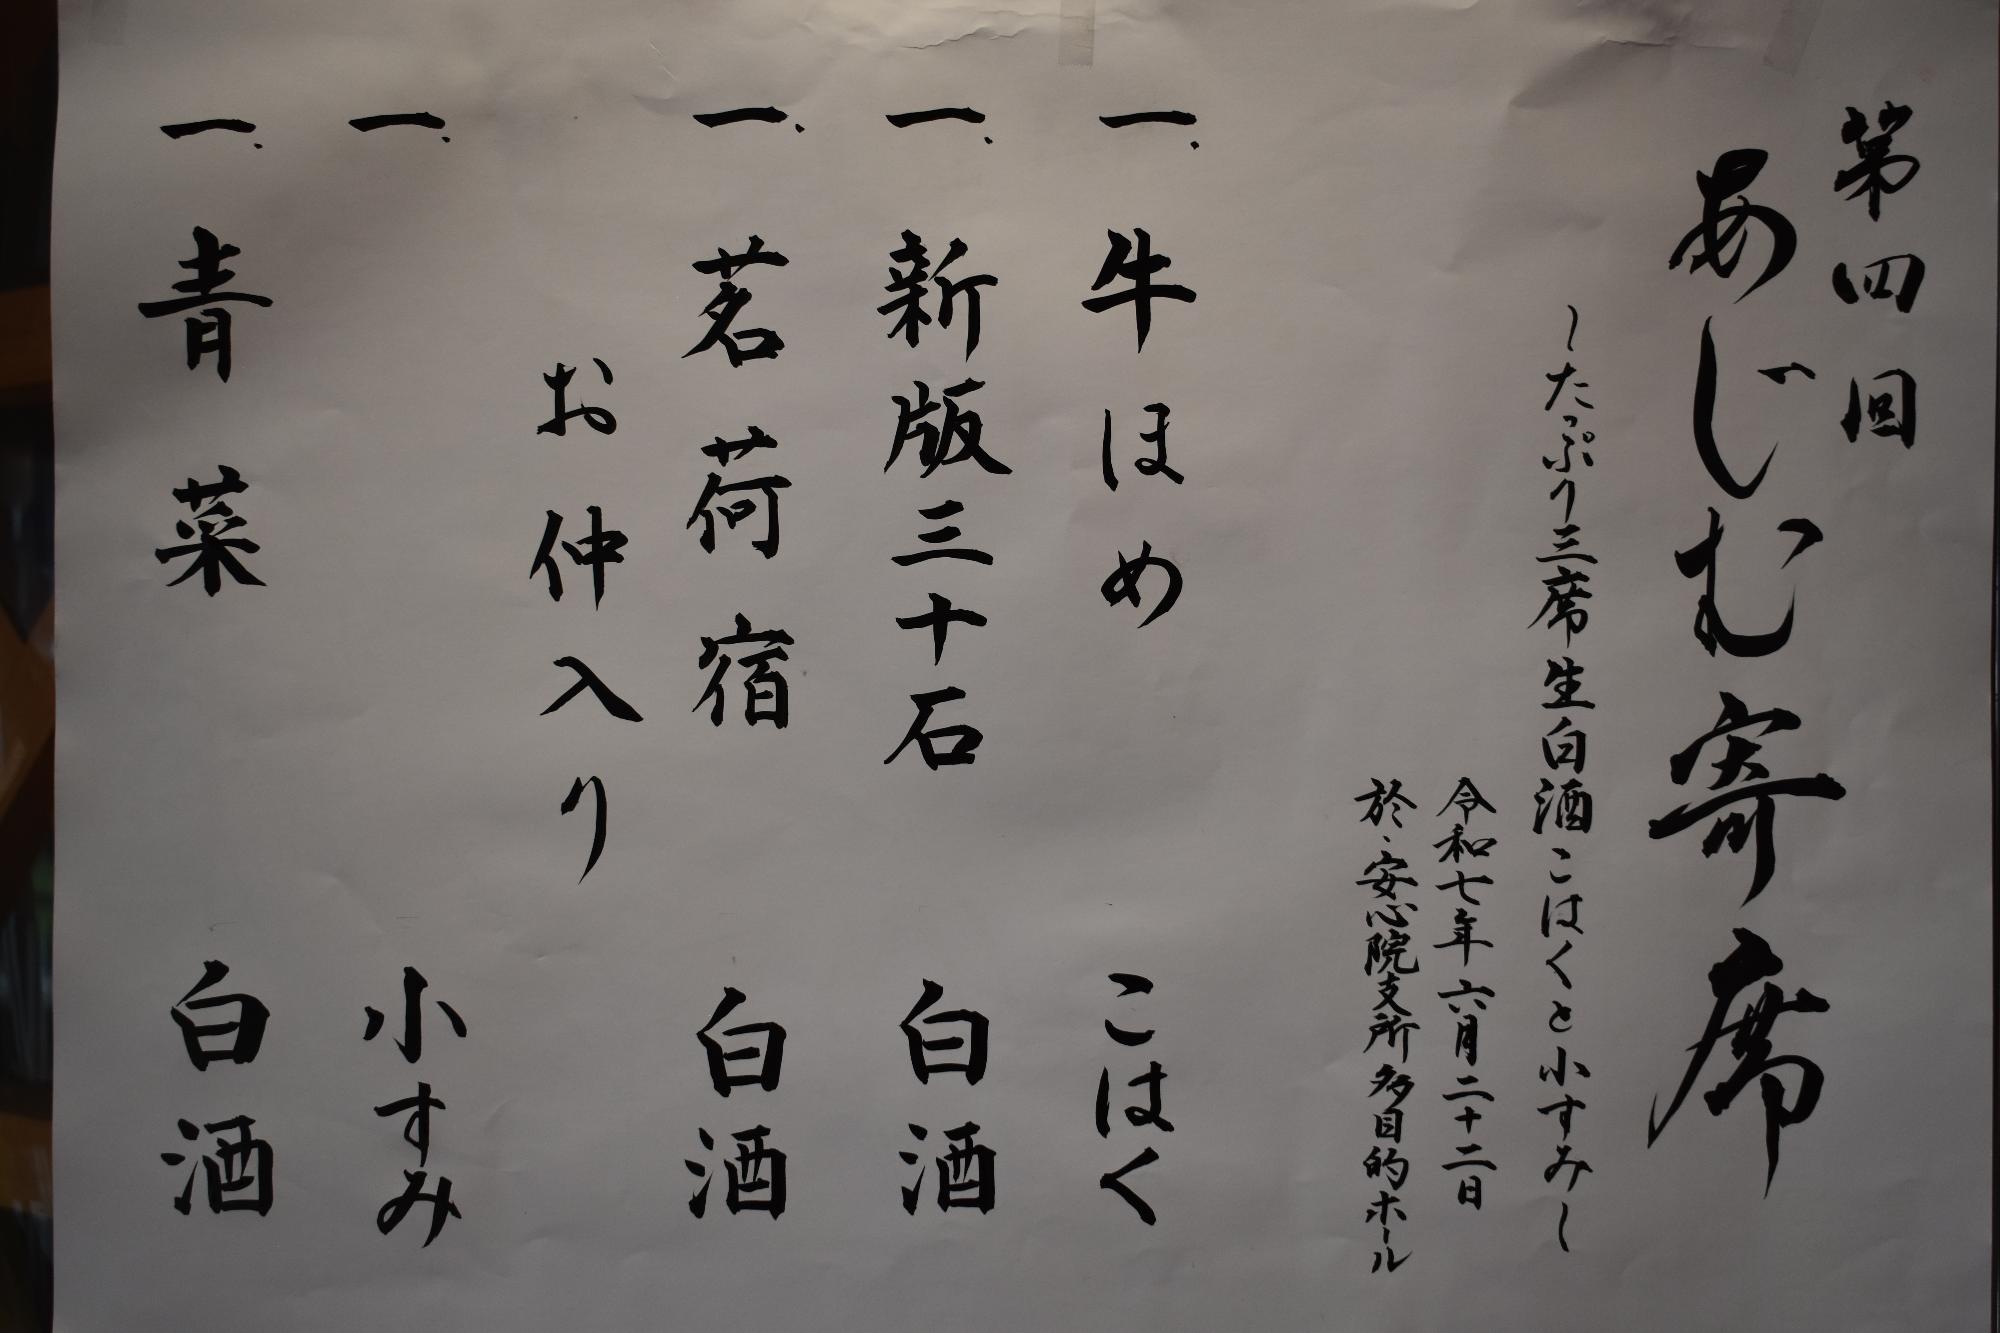 第四回
あじむ寄席
～たっぷり三席生白酒こはくと小すみ～
令和七年六月二十二日
於、安心院支所多目的ホール
一、牛ほめ こはく
一、新版三十石 白酒
一、茗荷宿 白酒
お仲入り
一、 小すみ
一、青菜 白酒